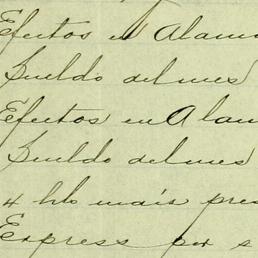 Efectos en Alamo
Sueldo del mes
Efectos en Alam
Sueldo del mes
4 hlo mais pres
Express por s